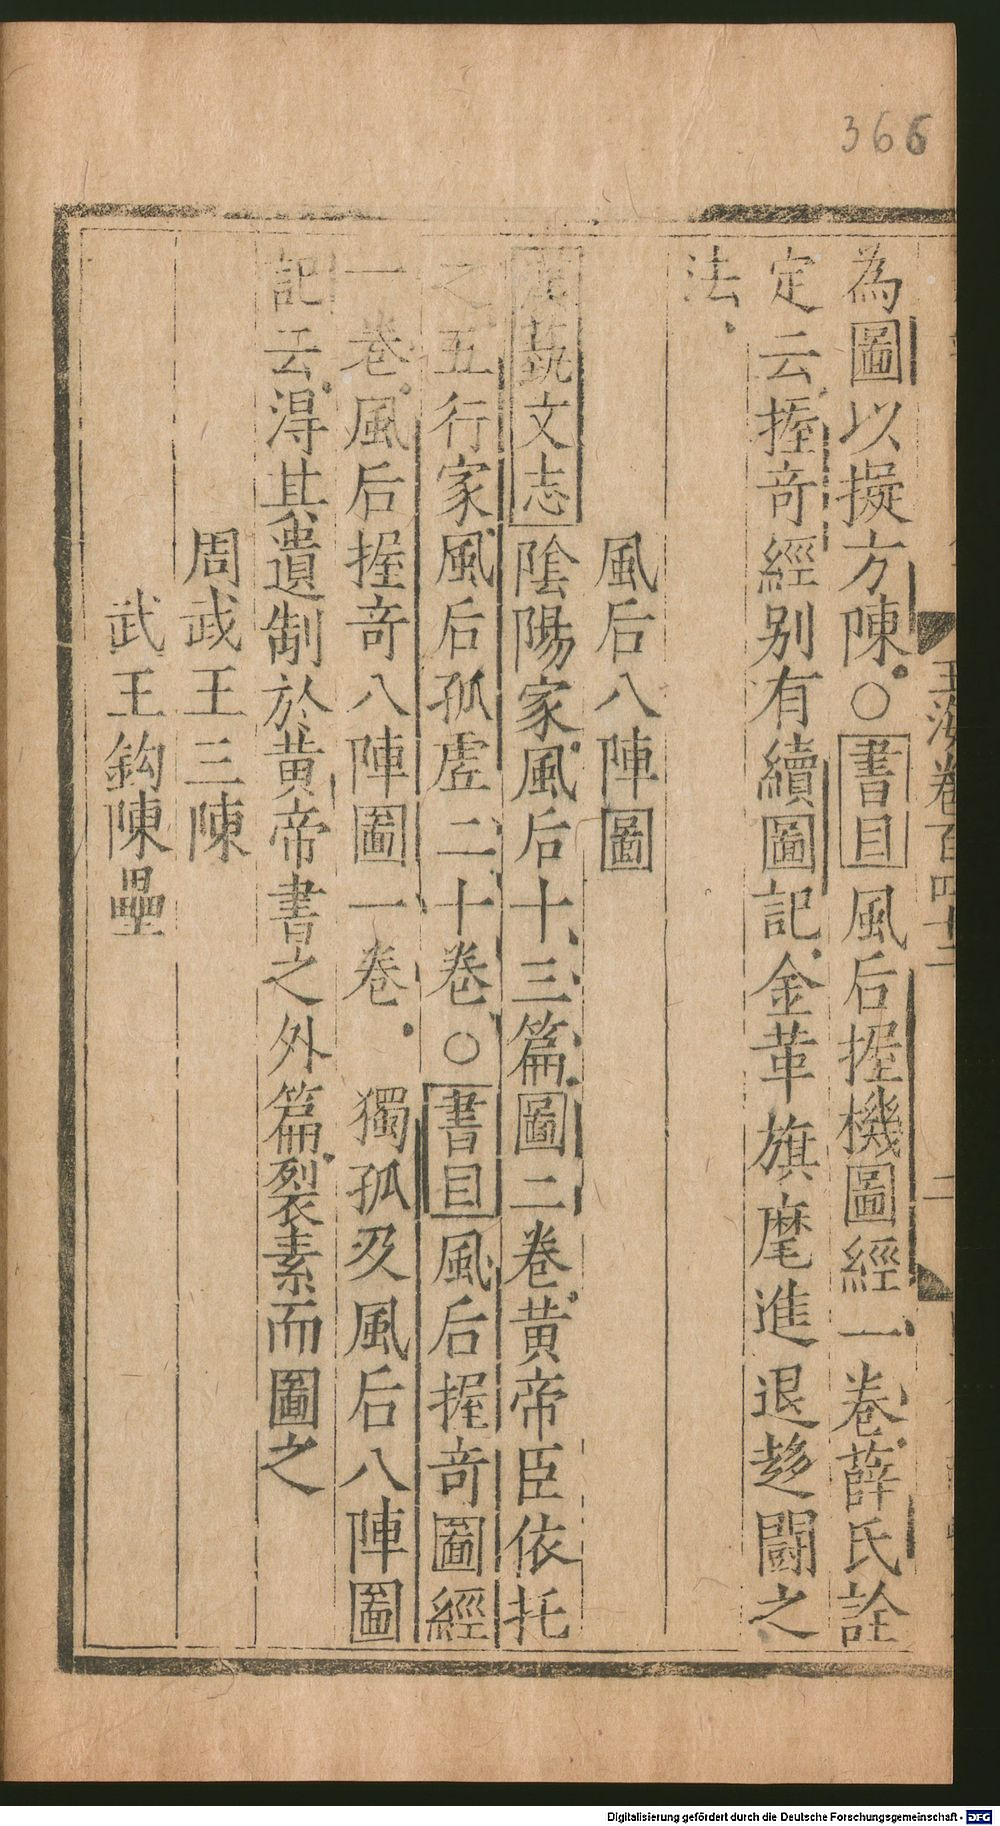 366
為圖以擬方陳○書目風后握機圖經一卷薛氏詮
定云握奇經别有續圖記金革旗麾進退趍闘之
法
風后八陣圖
藝文志陰陽家風后十三篇圖二卷黄帝臣依托
之五行家風后孤虗二十卷○書目風后握奇圖經
一卷風后握奇八陣圖一卷 獨孤及風后八陣圖
記云淂其遺制於黄帝書之外篇裂素而圖之
周武王三陳
武王鈎陳壘
玉海卷百四十二
二
Digitalisierung gefördert durch die Deutsche Forschungsgemeinschaft - DFG